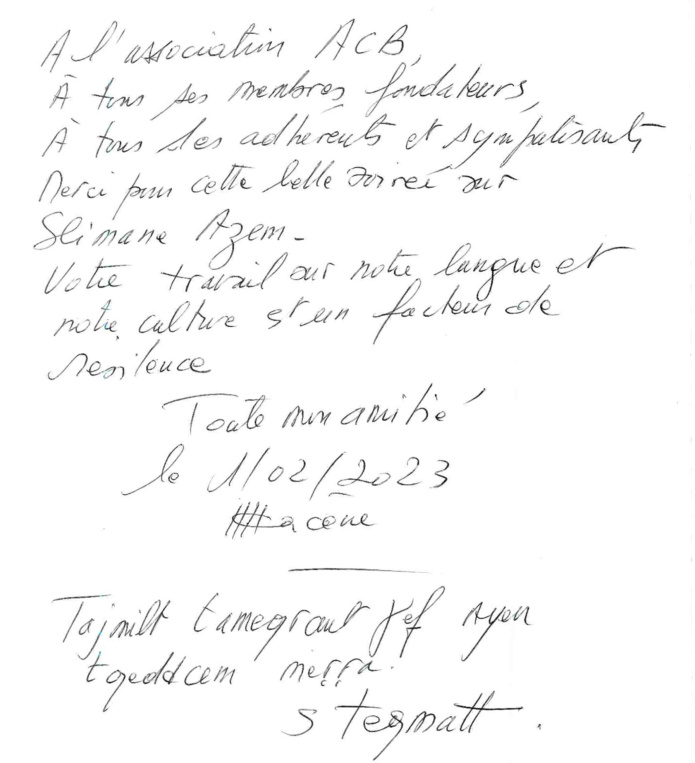 A l'association ACB,
À tous ses membres fondateurs,
À tous ses adhérents et sympatisants
Merci pour cette belle soirée sur
Slimane Azem -
Votre travail sur notre langue et
notre culture est un facteur de
resilence
Toute mon amitié
le 1/02/2023
Tajmilt tameqrant γef ayen
txeddem meṛṛa.
s tegmatt.